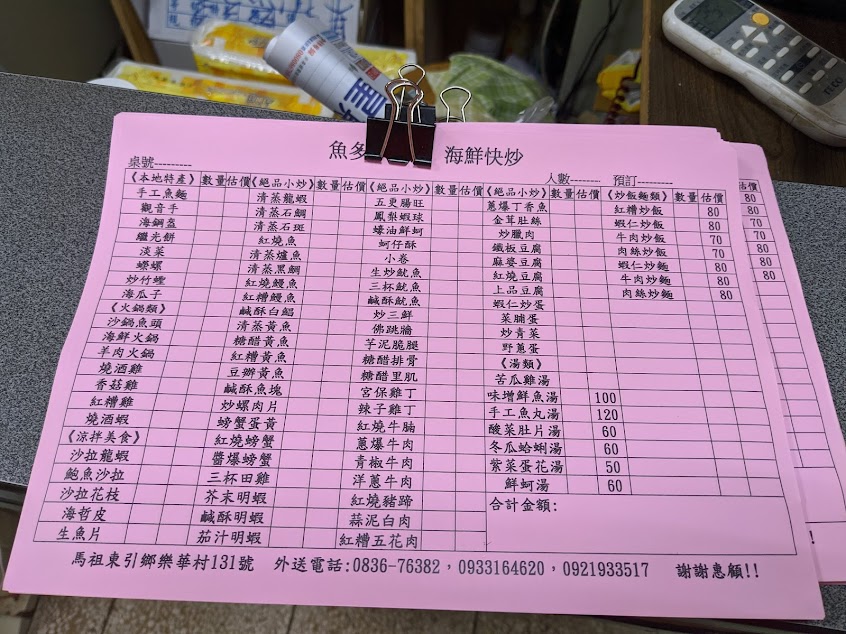 魚多 海鮮快炒
桌號--------- 人數--------- 預訂----------
《本地特產》 數量 估價 《絕品小炒》 數量 估價 《絕品小炒》 數量 估價 《絕品小炒》 數量 估價 《炒飯麵類》 數量 估價
手工魚麵 清蒸龍蝦 五更腸旺 蔥爆丁香魚 紅糟炒飯 80
觀音手 清蒸石鯛 鳳梨蝦球 金茸肚絲 蝦仁炒飯 80
海鋼盔 清蒸石斑 蠔油鮮蚵 炒臘肉 牛肉炒飯 70
繼光餅 紅燒魚 蚵仔酥 鐵板豆腐 肉絲炒飯 70
淡菜 清蒸爐魚 小卷 麻婆豆腐 蝦仁炒麵 80
蠑螺 清蒸黑鯛 生炒魷魚 紅燒豆腐 牛肉炒麵 80
炒竹蟶 紅燒鰻魚 三杯魷魚 上品豆腐 肉絲炒麵 80
海瓜子 紅糟鰻魚 鹹酥魷魚 蝦仁炒蛋
《火鍋類》 鹹酥白鯧 炒三鮮 菜脯蛋
沙鍋魚頭 清蒸黃魚 佛跳牆 炒青菜
海鮮火鍋 糖醋黃魚 芋泥脆腿 野蔥蛋
羊肉火鍋 紅糟黃魚 糖醋排骨 《湯類》
燒酒雞 豆瓣黃魚 糖醋里肌 苦瓜雞湯
香菇雞 鹹酥魚塊 宮保雞丁 味增鮮魚湯 100
紅糟雞 炒螺肉片 辣子雞丁 手工魚丸湯 120
燒酒蝦 螃蟹蛋黃 紅燒牛腩 酸菜肚片湯 60
《涼拌美食》 紅燒螃蟹 蔥爆牛肉 冬瓜蛤蜊湯 60
沙拉龍蝦 醬爆螃蟹 青椒牛肉 紫菜蛋花湯 50
鮑魚沙拉 三杯田雞 洋蔥牛肉 鮮蚵湯 60
沙拉花枝 芥末明蝦 紅燒豬蹄 合計金額:
海哲皮 鹹酥明蝦 蒜泥白肉
生魚片 茄汁明蝦 紅糟五花肉
馬祖東引鄉樂華村131號 外送電話:0836-76382，0933164620，0921933517 謝謝惠顧!!
估價
80
80
70
70
80
80